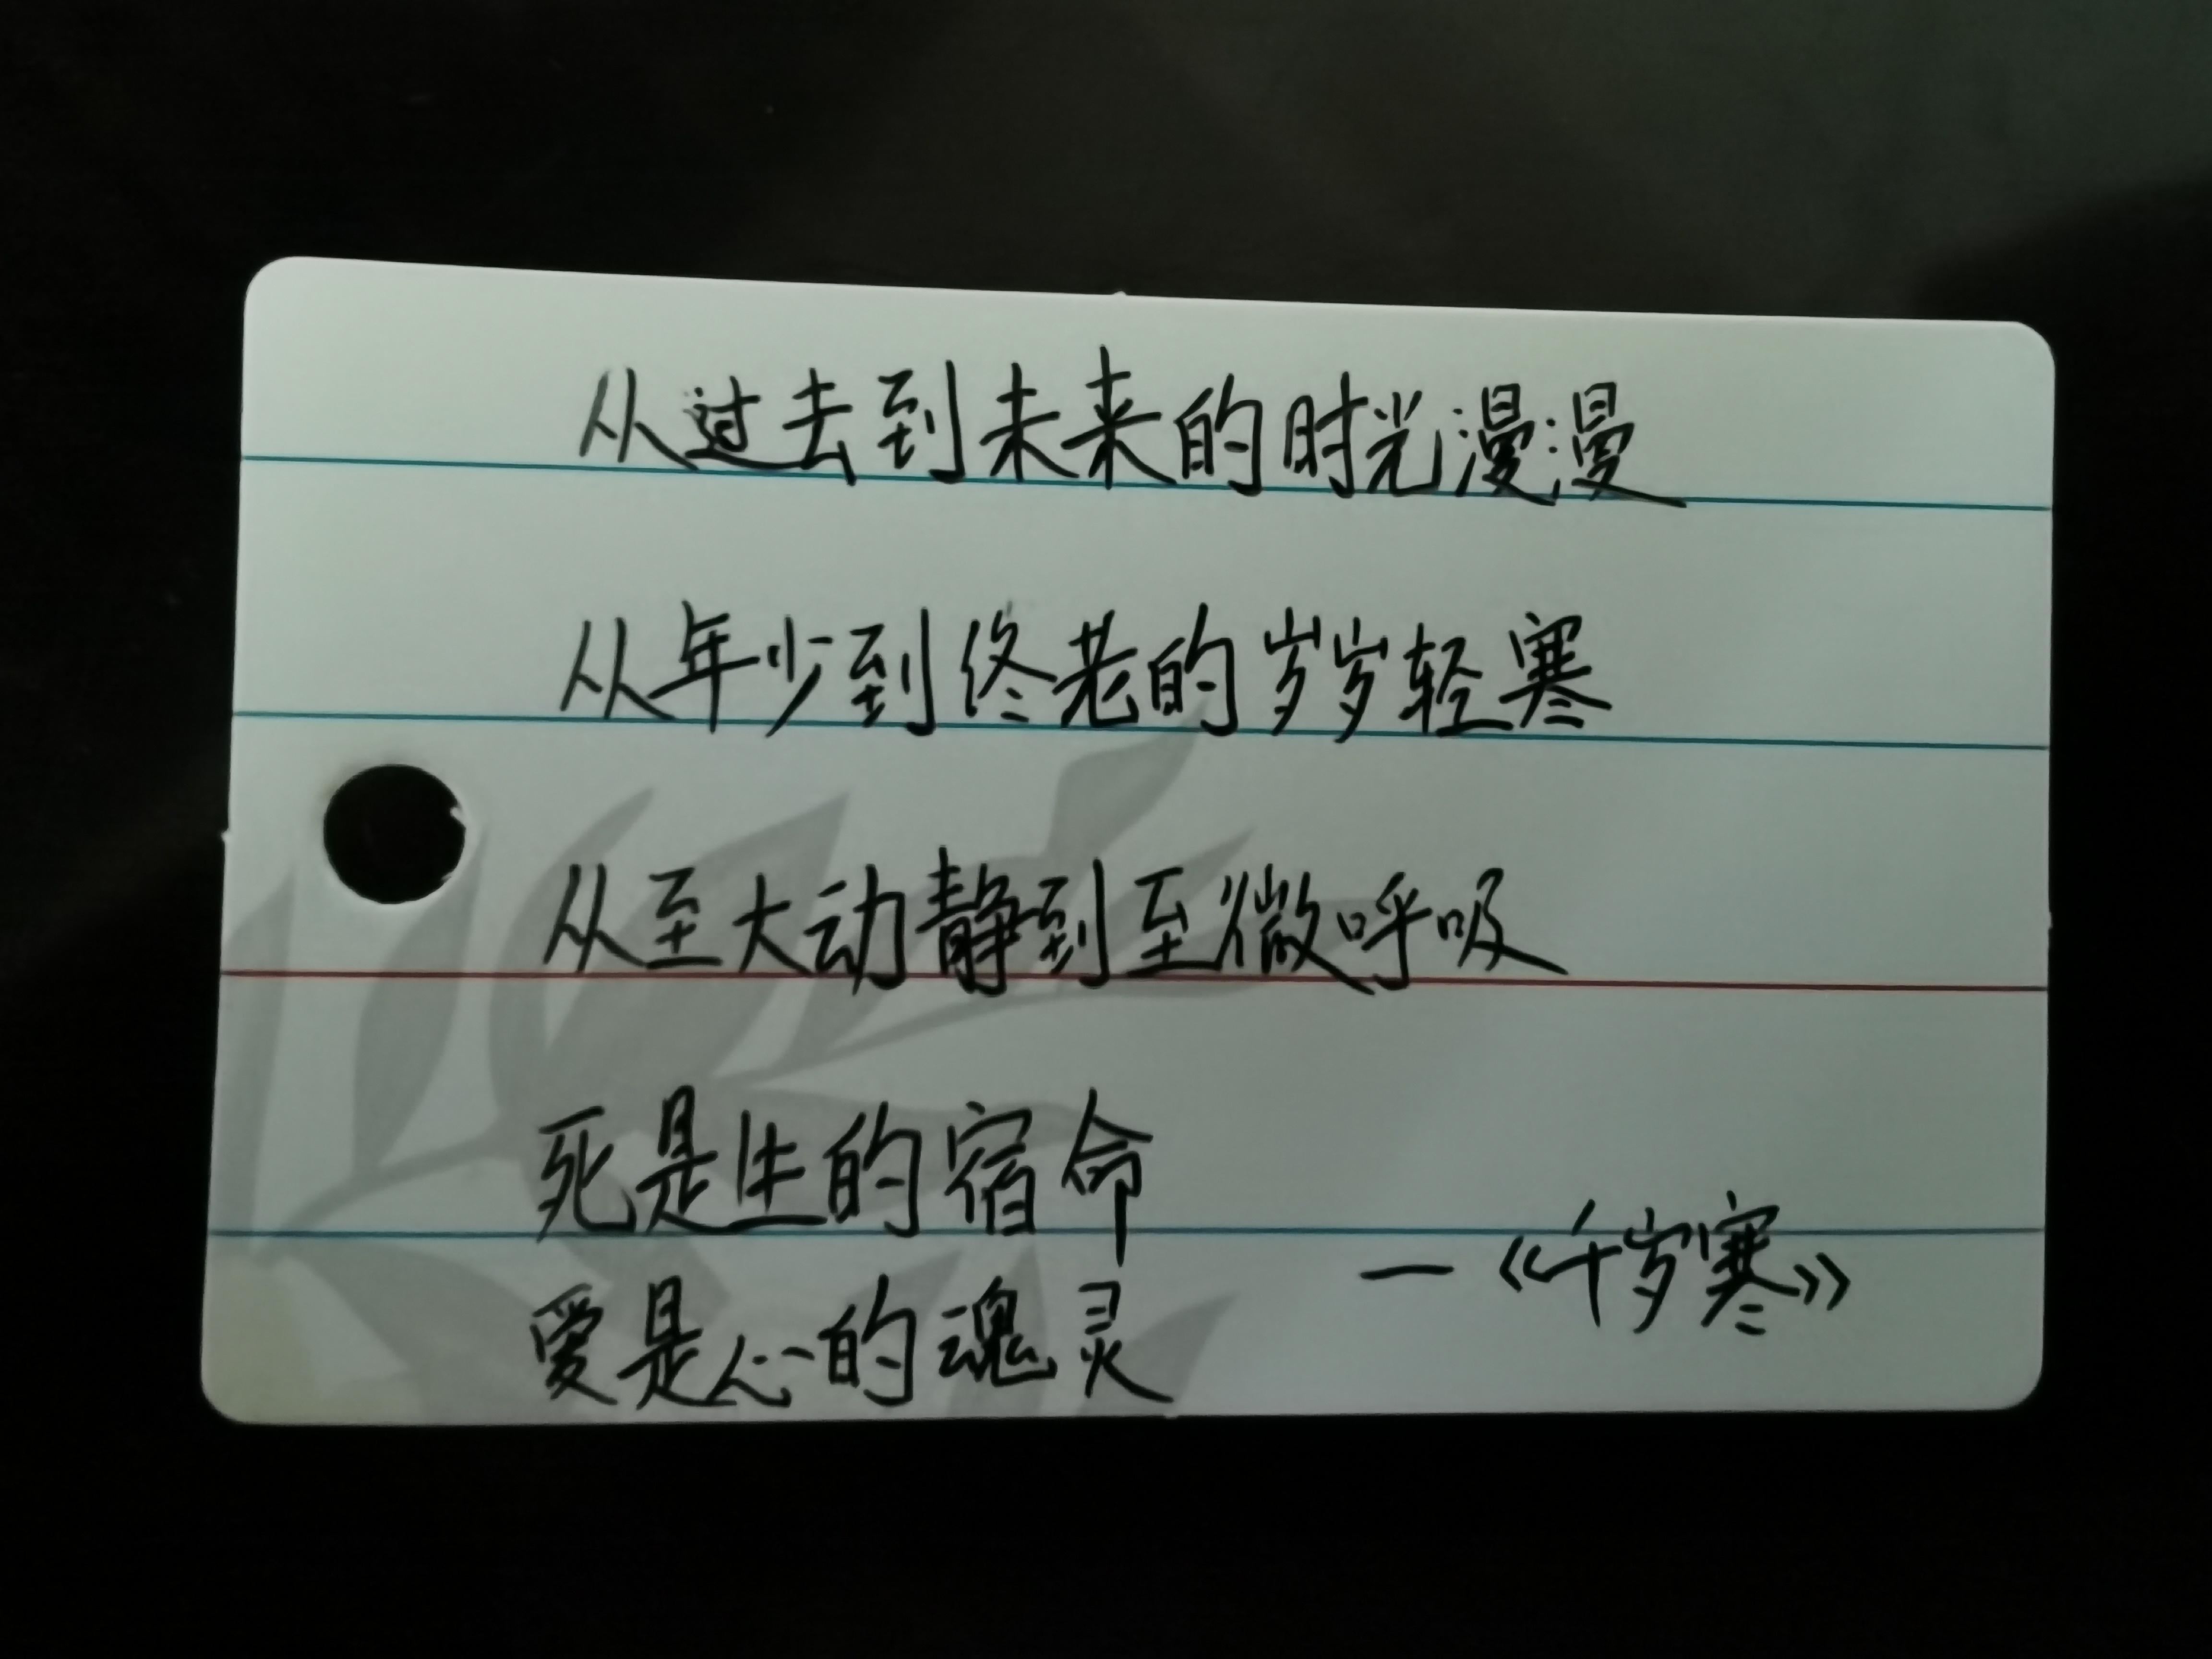 从过去到未来的时光漫漫
从年少到终老的岁岁轻寒
从至大动静到至微呼吸
死是生的宿命
爱是心的魂灵
—《千岁寒》